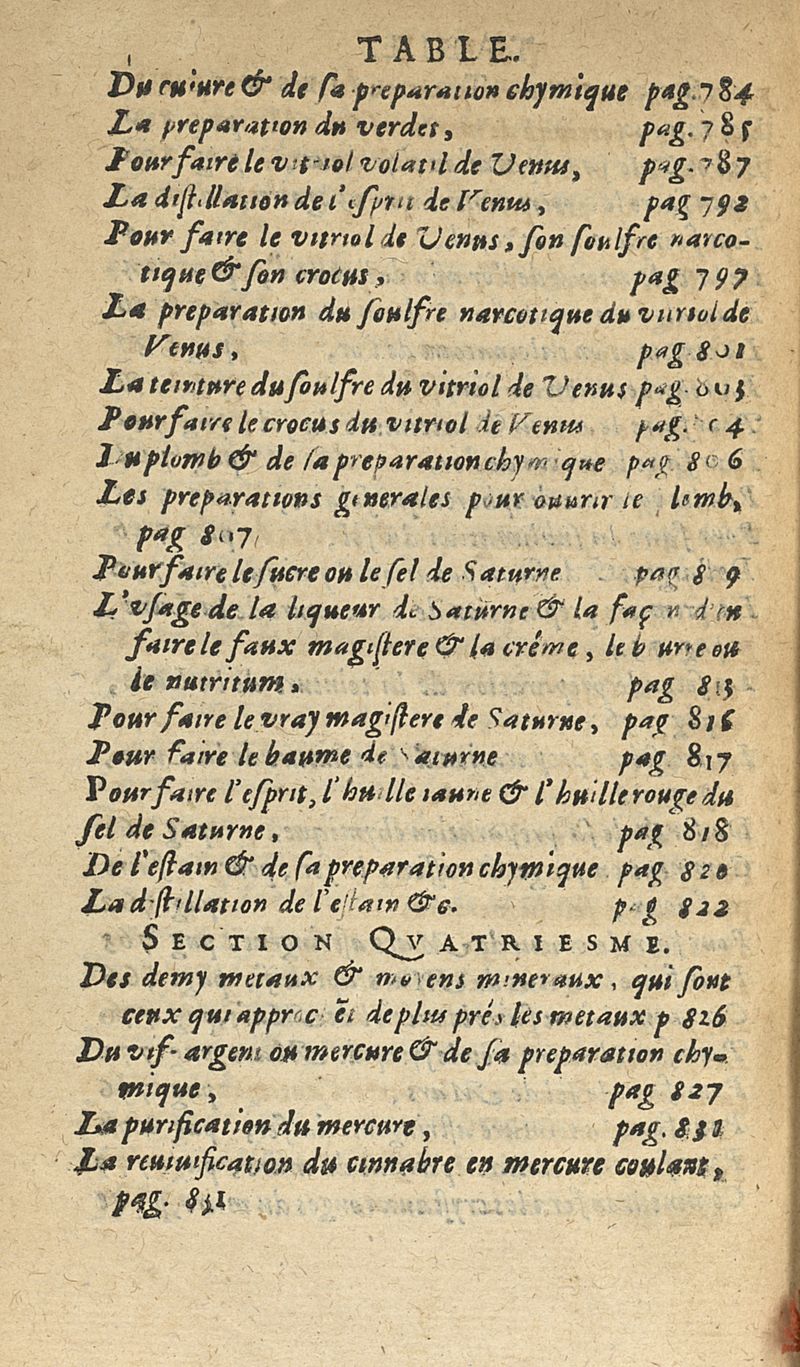 TABLE.
Du cuiure & de sa preparation chymique pag. 784
La preparation du verdet, pag. 785
Pour faire le vitriol volatil de Venus, pag. 787
La distillation de l'esprit de Venus, pag 792
Pour faire le vitriol de Venus, son soulfre narco-
tique & son crocus, pag 797
La preparation du soulfre narcotique du vitriol de
Venus, pag 801
La teinture du soulfre du vitriol de Venus pag. 803
Pour faire le crocus du vitriol de Venus pag.
Du plomb & de sa preparation chymique pag 806
Les preparations generales pour ouurir le plomb,
pag 807
Pour faire le sucre ou le sel de Saturne pag 8 9
L'vsage de la liqueur de Saturne & la façon d'en
faire le faux magistere & la créme, le burre ou
le nutritum, pag 813
Pour faire le vray magistere de Saturne, pag 816
Pour faire le baume de Saturne pag 817
Pour faire l'esprit, l'huille iaune & l'huille rouge du
sel de Saturne, pag 818
De l'estain & de sa preparation chymique pag 820
La distillation de l'estain &c. pag 822
SECTION QVATRIESME.
Des demy metaux & moyens mineraux, qui sont
ceux qui approchẽt de plus prés les metaux p 826
Du vif-argent ou mercure & de sa preparation chy-
mique, pag 827
La purification du mercure, pag. 831
La reuiuification du cinnabre en mercure coulant,
pag. 831